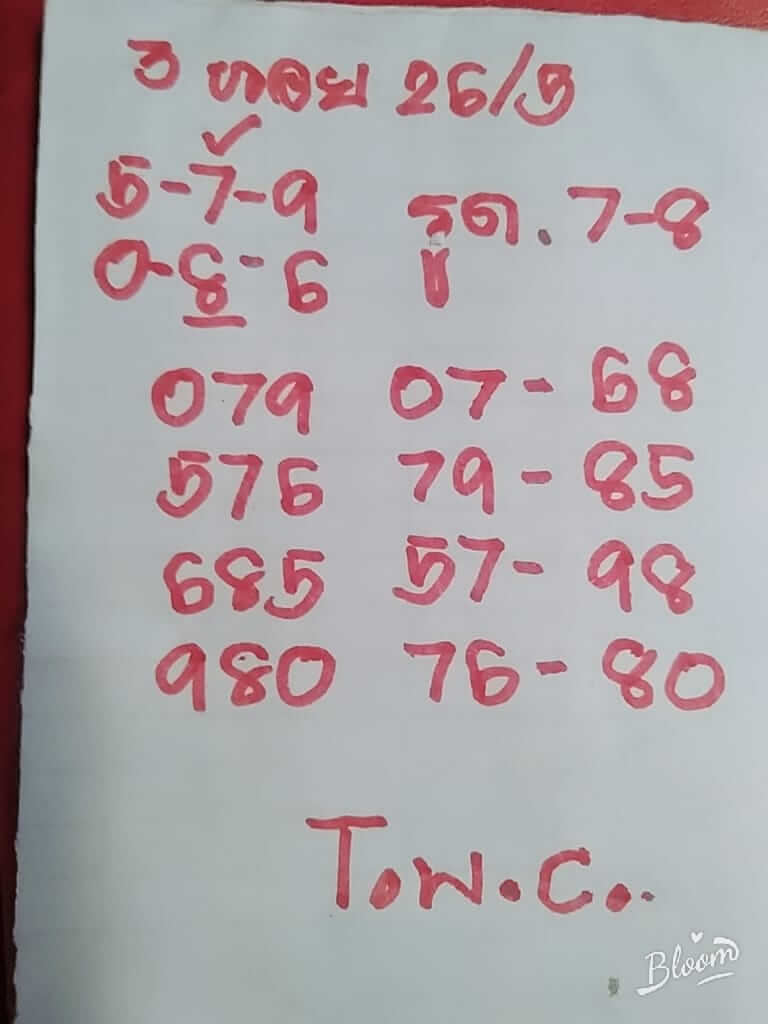 ว ฮานอย 26/5
5-7-9
รูด. 7-8
0-8-6
079 07-68
576 79-85
685 57-98
980 76-80
T.พ.C..
Bloom